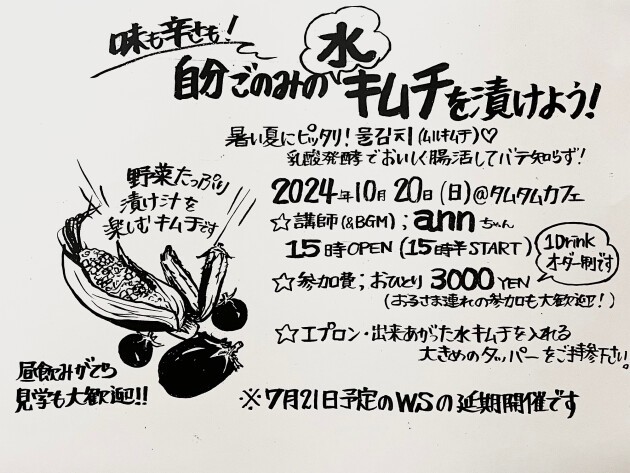 味も辛さも!
自分ごのみの水キムチを漬けよう!
暑い夏にピッタリ! 물김치(ムルキムチ)♡
乳酸発酵でおいしく腸活してバテ知らず!
野菜たっぷり
漬け汁を
楽しむキムチです
2024年10月20日(日)@タムタムカフェ
☆講師(&BGM);annちゃん
15時OPEN(15時半START)
1Drink
オーダー制です
☆参加費;おひとり3000YEN
(お子さま連れの参加も大歓迎!)
☆エプロン・出来あがった水キムチを入れる
大きめのタッパーをご持参下さい。
昼飲みがてら
見学も大歓迎!!
※7月21日予定のWSの延期開催です